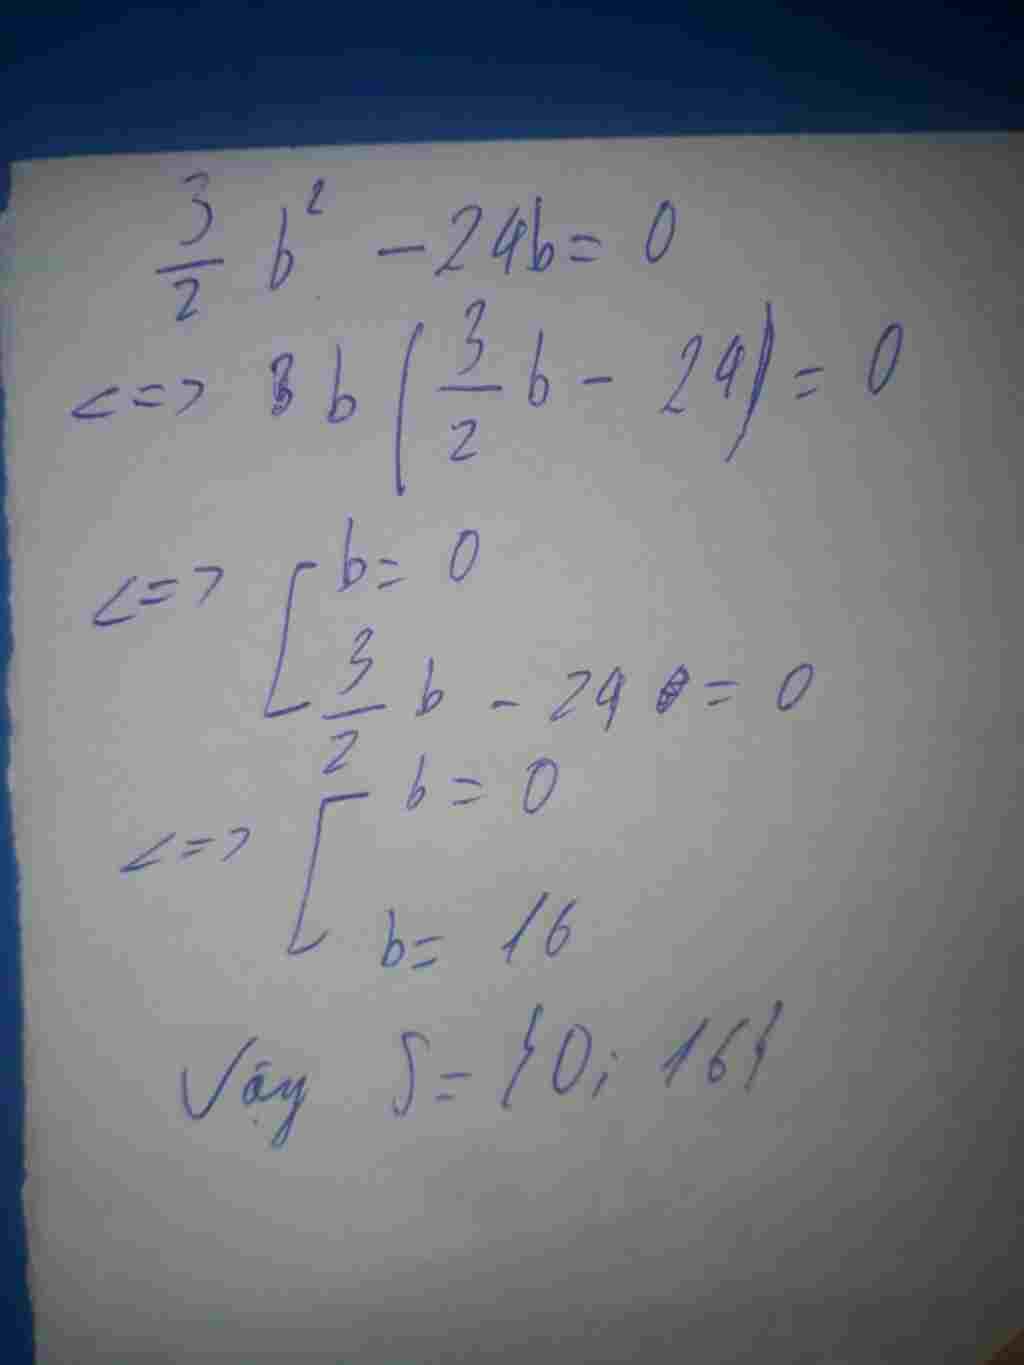 3/2 b² - 24b = 0
<=> b ( 3/2 b - 24 ) = 0
<=> [ b = 0
3/2 b - 24 = 0
<=> [ b = 0
b = 16
Vậy S = {0; 16}